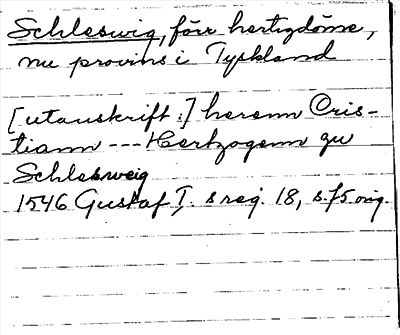 Schleswig, förr hertigdöme,
nu provins i Tyskland
[utanskrift:] herenn Cris-
tiann --- Hertzogenn zu
Schlesweig
1546 Gustaf I. s reg. 18, s. 75 orig.